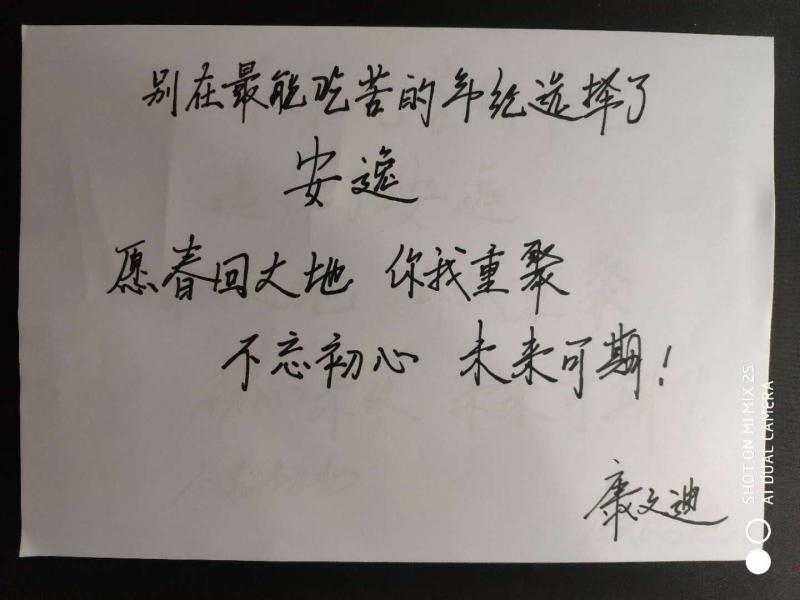 别在最能吃苦的年纪选择了
安逸
愿春回大地 你我重聚
不忘初心 未来可期!
康文迪
SHOT ON MI MIX 2S
AI DUAL CAMERA